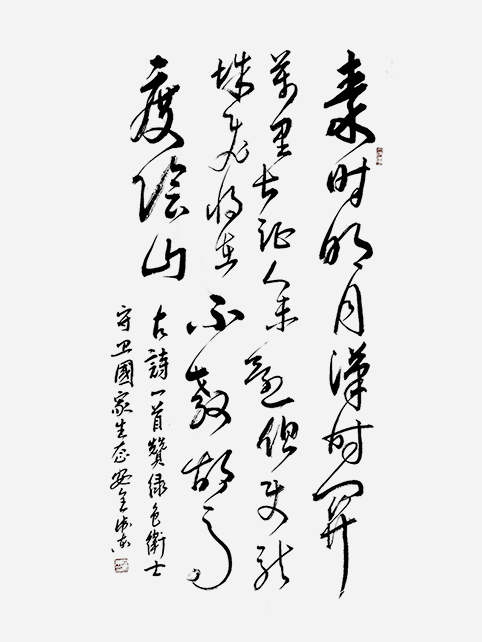 秦时明月漢时関
萬里长征人未還但使龙
城飛将在不教胡马
度陰山
古詩一首贊绿色衛士
守卫國家生态安全